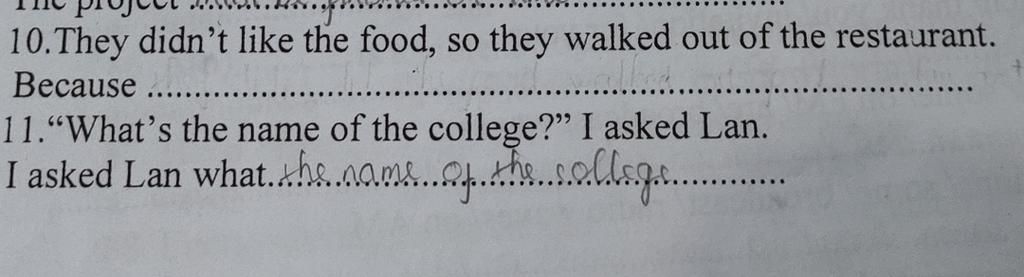 The project
10.They didn't like the food, so they walked out of the restaurant.
Because ................................................................................
11."What's the name of the college?" I asked Lan.
I asked Lan what..the name of the college............